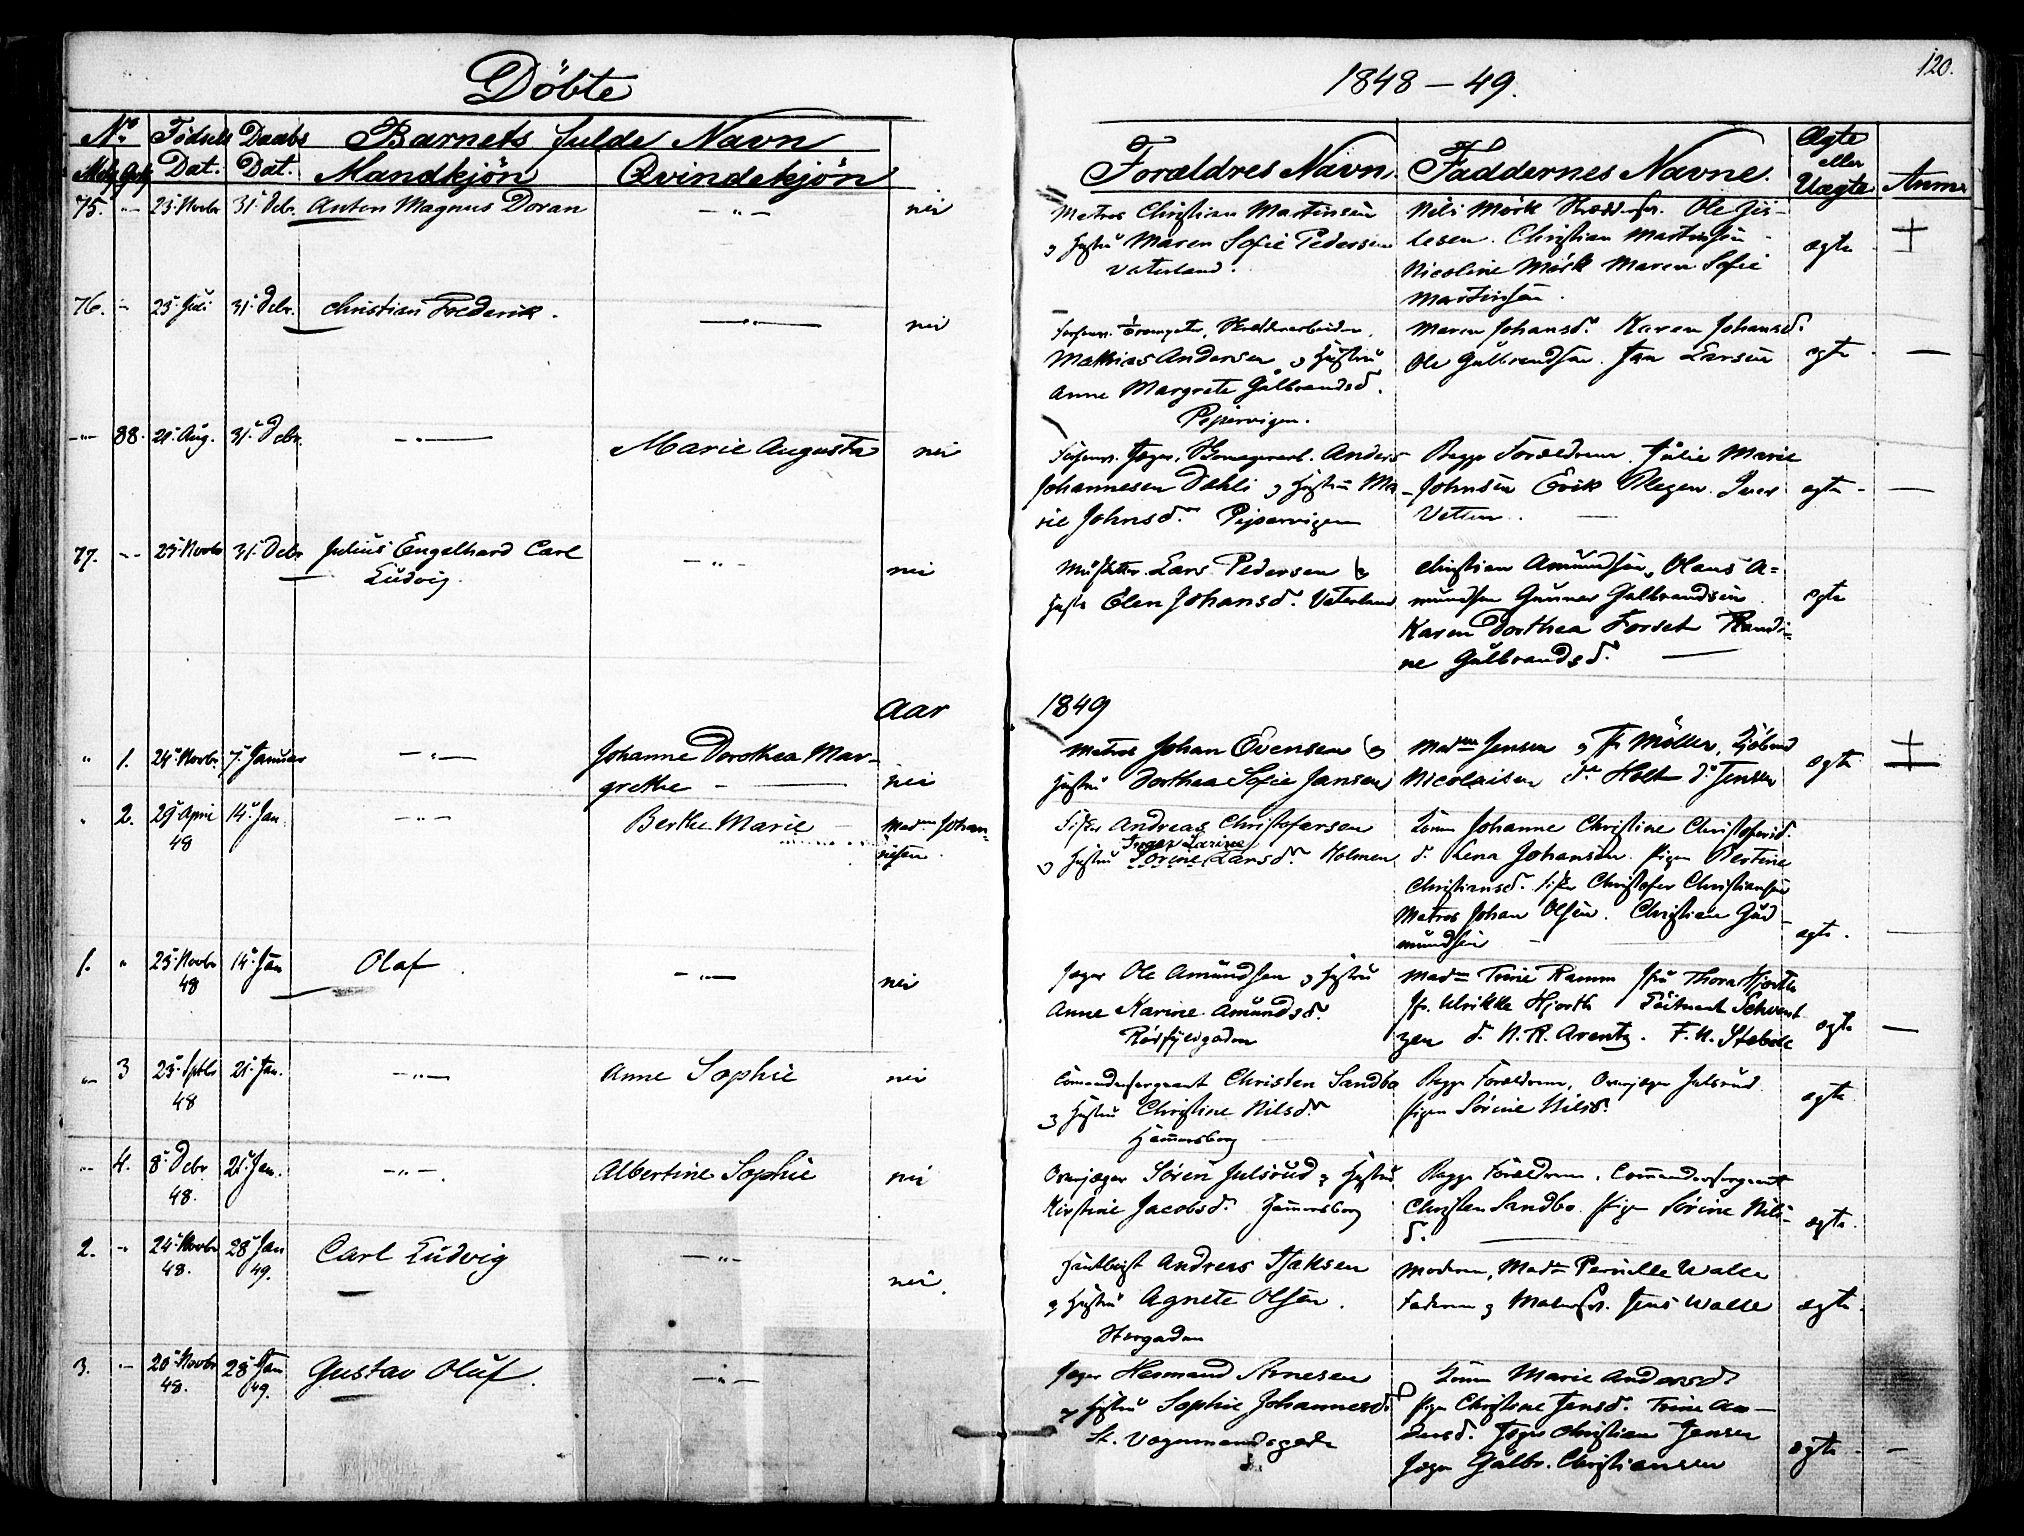 Döbte
1848–49.
120.
No
Födsels
Daabs
Barnets fulde Navn
Forældres Navn
Faddernes Navne.
Ægte
eller
Uægte
Anm.
Dat.
Dat.
Mandkjön
Qvindekjön
75.
25 Novbr
31 Debr.
Anton Magnus Doran
nei
Matros Christian Martinsen
& Hustru Maren Sofie Pedersen
Vaterland.
Nils Mörk
Christian Martinsen
Nicoline Mörk Maren Sofie
Martinsen.
ægte
+
76.
25 Juli
31 Debr.
Christian Frederik.
nei
Mathias Andersen & Hustru
Anne Margrete Gulbrandsd.
Pipervigen.
Maren Johansd. Karen Johansd.
Ole Gulbrandsen. Jan Larsen
ægte
88.
21 Aug.
31 Debr.
Marie Augusta
nei
Anders
Johannesen Dahli & Hustru Ma-
rie Johnsd. Pipervigen
Begge Forældrene. Julie Marie
Johnsen Erik
ægte
77.
25 Novbr
31 Debr
Julius Engelhard Carl
Ludvig.
nei
Lars Pedersen &
Hustr Elen Johansd. Vaterland
Christian Amundsen, Olaus A=
mundsen Gunner Gulbrandsen
Karen Dorthea Forset Randi=
ne Gulbrandsd.
ægte
Aar
1849
1.
24 Novbr.
7 Januar
Johanne Dorothea Mar-
grethe
nei
Matros Johan Evensen &
Hustru Dorthea Sofie Jansen
Madm Jensen & Fr Möller,
Nicolaisen do Holt do Jensen
ægte
+
2.
29 April
48
14 Jan.
Berthe Marie
Madm Johan-
nesen.
Andreas Christofersen
Inger Larine
& Hustru Sorine Larsd. Holmen
Johanne Christine Christofersd.
d. Lena Johansen. Pigen Bertine
Christiansd. Christofer Christiansen
Matros Johan Olsen. Christian Gud-
mundsen
ægte.
1.
25 Novbr
48
14 Jan
Olaf
nei
Jæger Ole Amundsen & Hustru
Anne Karine Amundsd.
Madm Trine Ramm Thora Hjorth
Ulrikke Hjorth
d. N. R. Arentz.
ægte
3
25 Septbr
48
21 Jan.
Anne Sophie
nei
Commandersergeant Christen Sandbo
& Hustru Christine Nilsd.
Hammersborg
Begge Forældrene, Overjæger Julsrud
Pigen Sörine Nilsd.
ægte
4.
8 Debr
48.
21 Jan.
Albertine Sophie
nei
Overjæger Sören Julsrud & Hustru
Kirstine Jacobsd. Hammersborg
Begge Forældrene. Commandersergeant
Christen Sandbo. Pige Sörine Nils-
d.
ægte.
2.
24 Novbr
48.
28 Jan
49.
Carl Ludvig
nei.
Andreas Isaksen
& Hustru Agnete Olsen.
Storgaden
Moderen, Madm Pernille Walle
Faderen & Jens Walle
ægte.
3.
20 Novbr
48.
28 Jan
49.
Gustav Oluf.
Jæger Hermand Arnesen
& Hustru Sophie Johannesd.
St. Vognmandsgade
Marie Andersd.
Pigen Christine Jensd. Trine An-
dersd. Jæger Christian Jensen
Jæger Gulbr. Christiansen
ægte